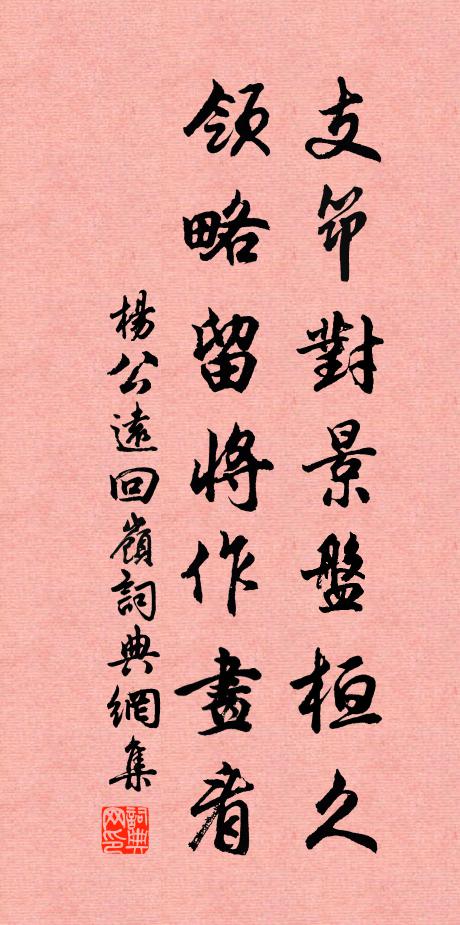 支筇對景盤桓久
領略留將作畫看
楊公遠回嶺詞典網集
詞典网印